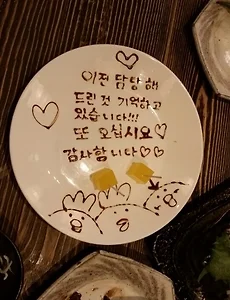 이전 담당해
드린 것 기억하고
있습니다!!!
또 오십시요♡
감사합니다♡♡